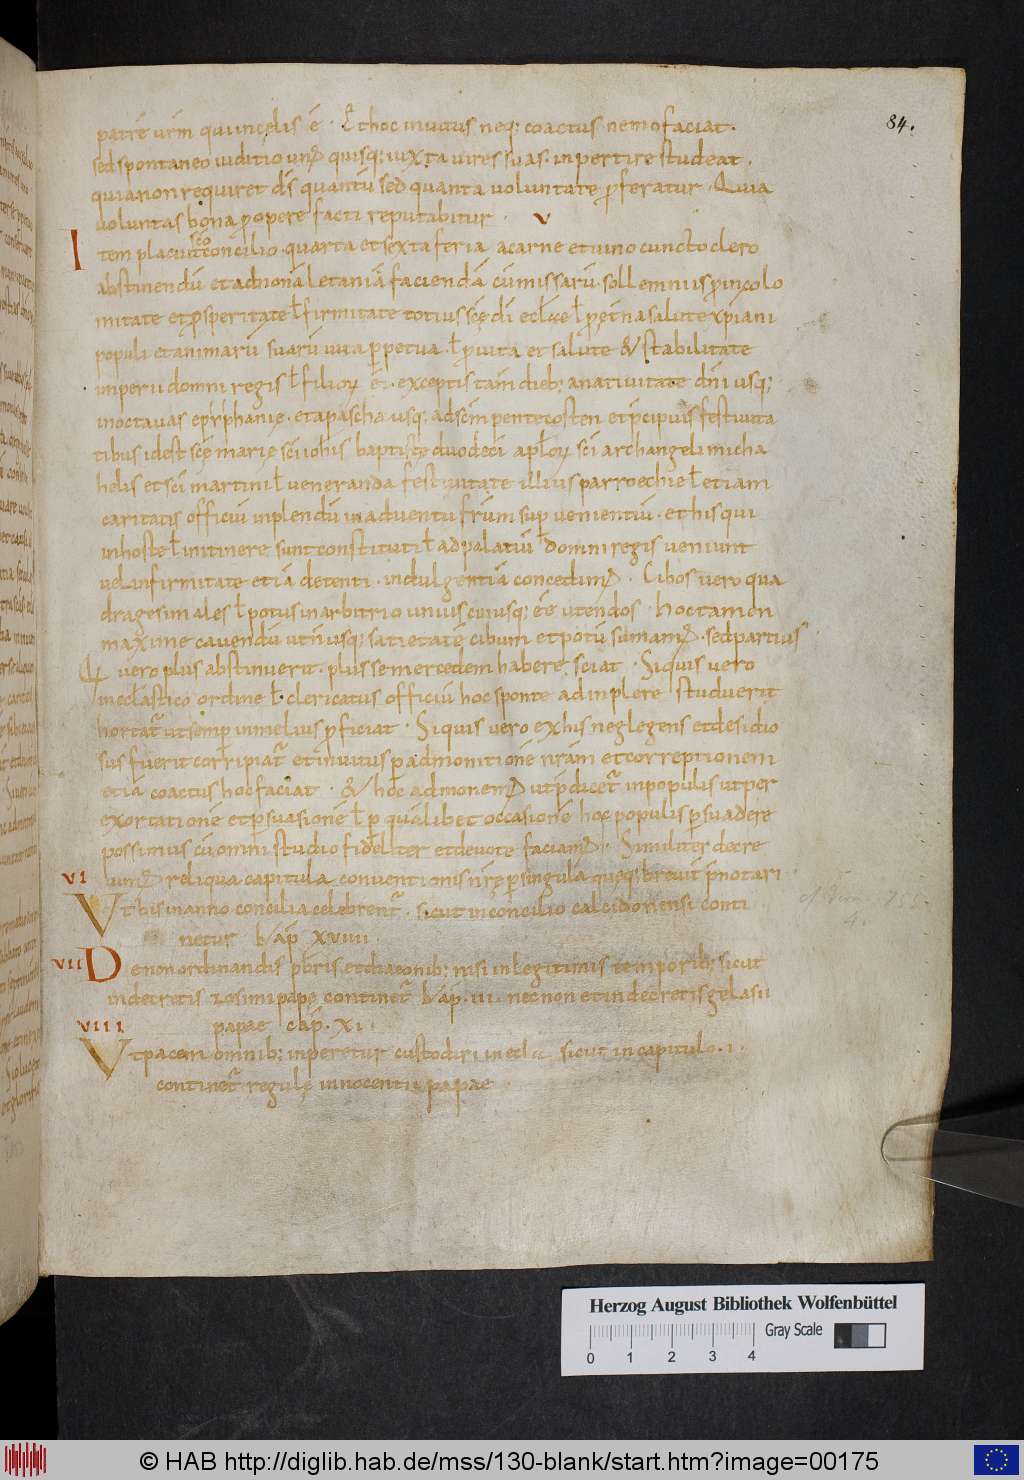 84.
patrē urm̄ qui in cęlis ē · Et hoc inuitus neq; coactus nemo faciat ·
sed spontaneo iuditio un quisq; iuxta uires suas · inpertire studeat ·
quia non requiret d̄s quantū sed quanta uoluntate p̄feratur · Quia
uoluntas bona p opere facti reputabitur · V
Item placuit sc̄o concilio quarta et sexta feria a carne et uino cuncto clero
abstinendū et ad nonā letaniā faciendā cū missarū sollemniis p incolo
mitate et prosperitate ł firmitate totius scę dī eccłae ł p ęt̄na salute xp̄iani
populi et animarū suarū uita ppetua · ł p uita et salute & stabilitate
imperii domni regis ł filiorū ei · exceptis tam dieb; a natiuitate dn̄i usq;
in octauas epyphanię · et a pascha usq; ad scm̄ pentecosten et p̄cipuis festiuita
tibus id est scę marię sc̄i ioh̄is baptistę duodeci apłorū sc̄i archangeli micha
helis et sc̄i martini ł ueneranda festiuitate illius parroechię ł etiam
caritatis officiū inplendū in aduentu fr̄um sup uenientiū · et his qui
in hoste ł in itinere sunt constituti ł ad palatiū domni regis ueniunt
uel infirmitate etiā detenti · indulgentiā concedim · Cibos uero qua
dragesimales ł potus in arbitrio unius cuiusq; eē utendos · hoc tamen
maxime cauendū ut n̄ usq; satietatē cibum et potū sumam · sed partius
Qui uero plus abstinuerit · plus se mercedem habere sciat · Si quis uero
in eccłastico ordine ł clericatus officiū hoc sponte adinplere studuerit
hortat̄ ut semp in melius pficiat · Si quis uero ex his neglegens et desidio
sus fuerit corripiat̄ et inuitus p admonitionē nr̄am et correptionem
etiā coactus hoc faciat · & hoc admonem ut p̄dicet̄ in populis ut per
exortationē et psuasionē ł p qualibet occasionē hoc populis psuadere
possimus cū omni studio fideliter et deuote faciam · Similiter decre
uim reliqua capitula conuentionis nr̄ę p singula quęq; breuit̄ p̄notari
VI
Ut bis in anno concilia celebrent̄ · sicut in concilio calcidonensi conti
netur cap̄ xviiii
VII
De non ordinandis pb̄ris et diaconib; nisi in legitimis temporib; sicut
in decretis zosimi papę continet̄ cap̄ · iii · nec non et in decretis gelasii
papae cap̄ · xi ·
VIII
Ut pacem omnib; inperetur custodiri in eccła sicut in capitulo · i ·
continet̄ regulę innocentii papae
Herzog August Bibliothek Wolfenbüttel
Gray Scale
0 1 2 3 4
© HAB http://diglib.hab.de/mss/130-blank/start.htm?image=00175